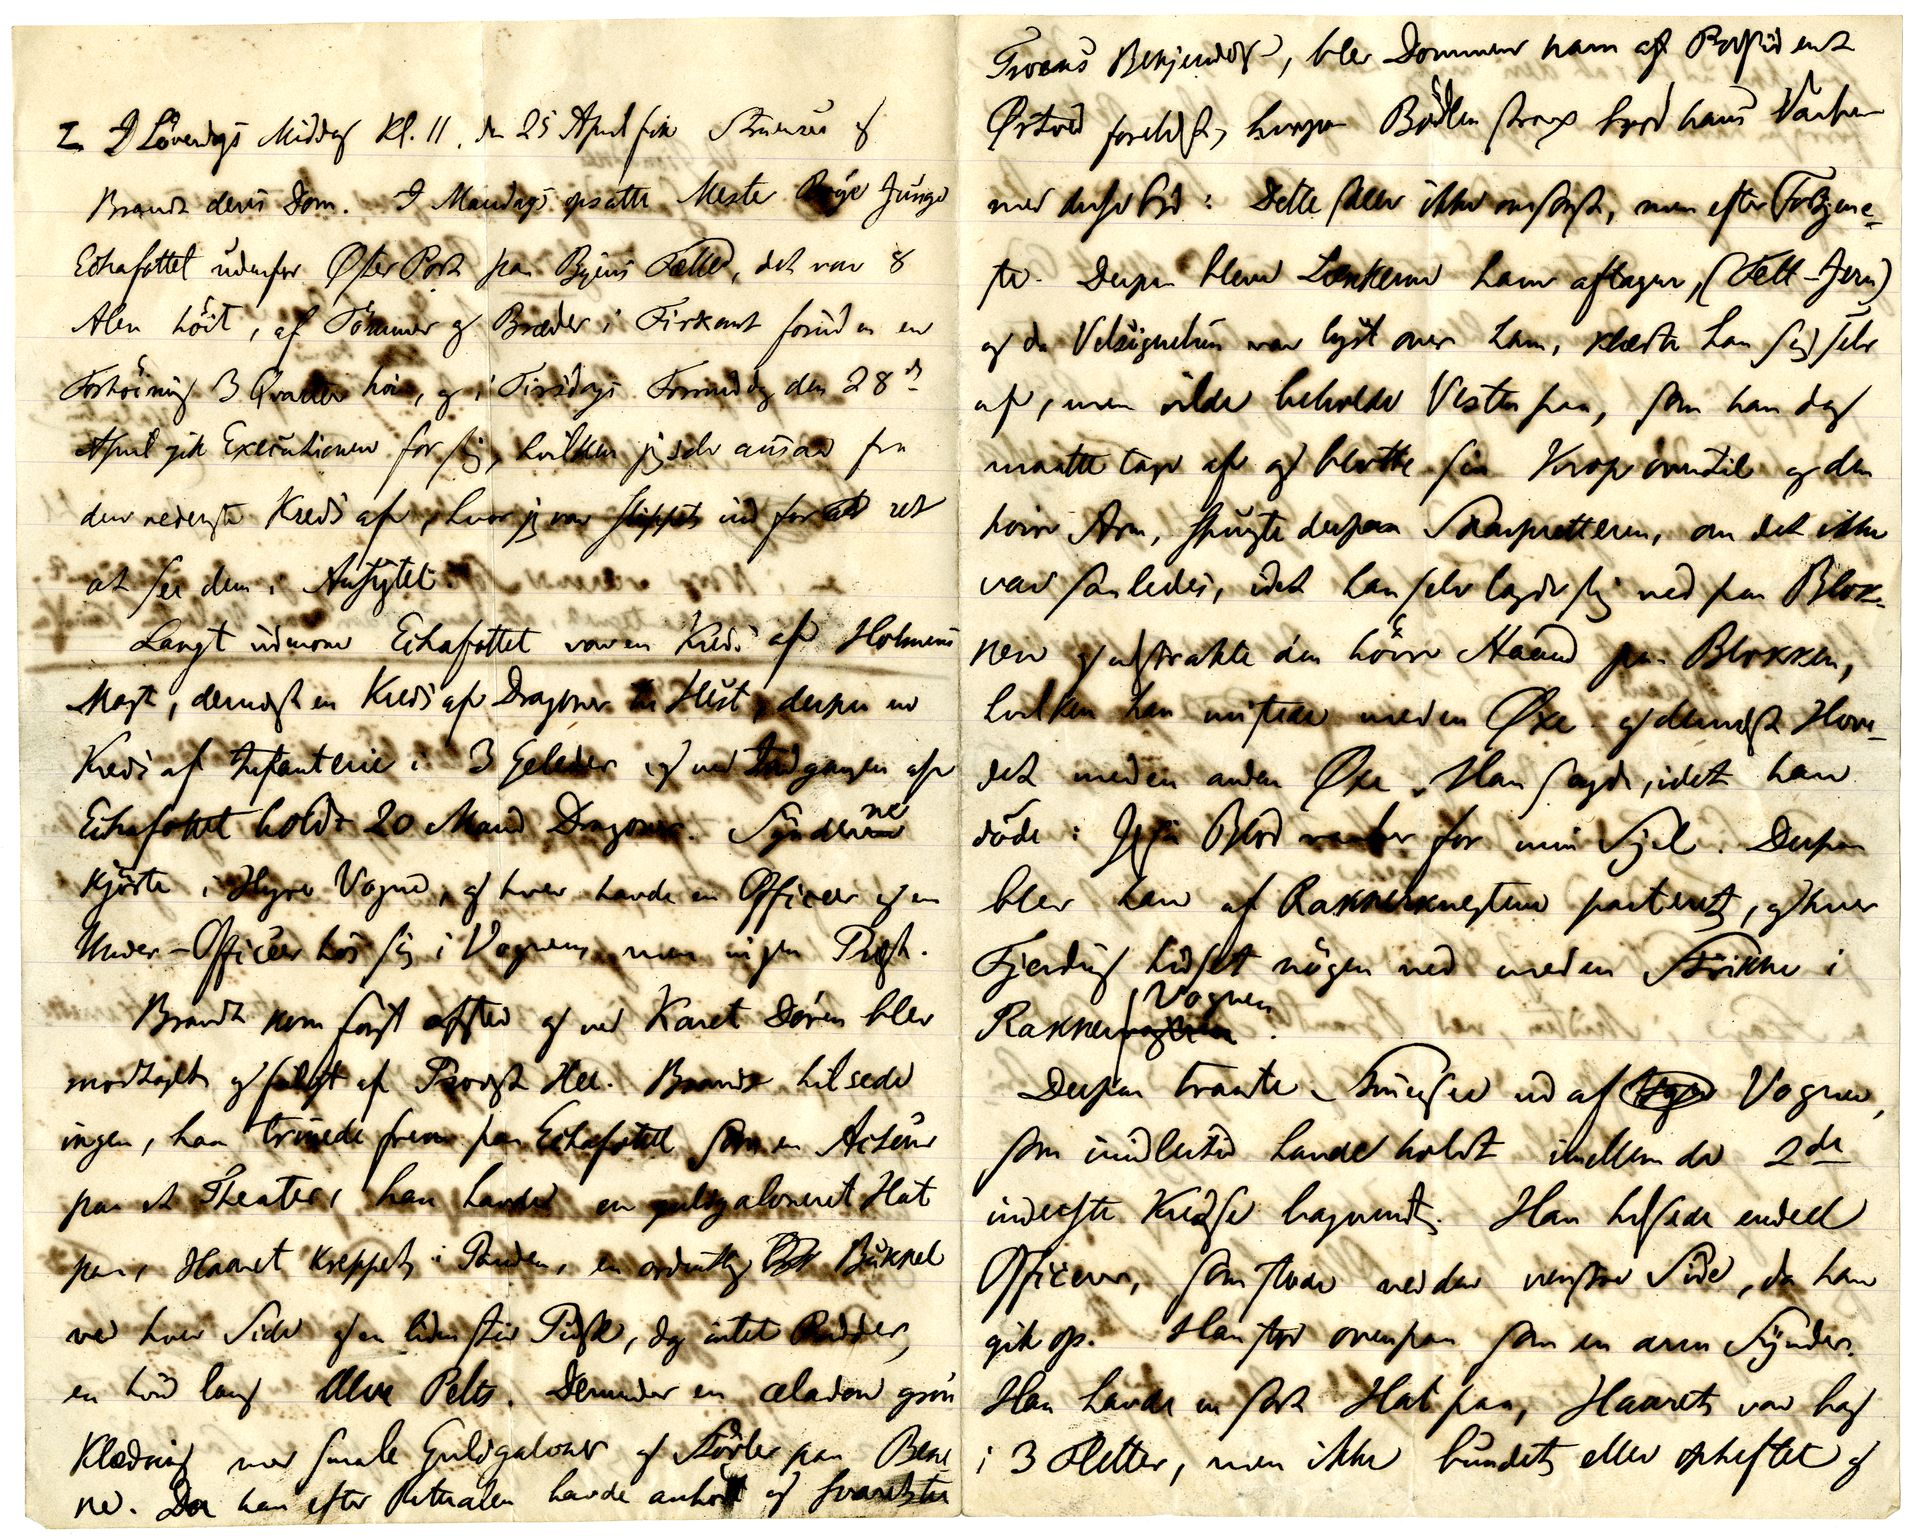 I Løverdags Middag Kl. 11, den 25 April fik Struensee og
Brandt deris Dom. I Mandags opsatte Mester Børge Junge
Echafottet udenfor Øster Port paa Byens Fælled, det var 8
Alen höit, af Tömmer og Bræder i Firkant foruden en
Forhöining 3 Qvarter höi, og i Tirsdags Formiddag den 28de
April gik Executionen for sig, hvilken jeg selv ansaae fra
den nederste Kreds af, hvor jeg var slippet ind for at ret
at see dem i Ansigtet.
Langt udenom Echafottet var en Kreds af Holmens
Magt, dernæst en Kreds af Dragoner til Hest, derpaa en
Kreds af Infanterie i 3 Geleder og ved Indgangen af
Echafottet holdt 20 Mand Dragoner. Synderne
kjörte i Hyre Vogne, og hver havde en Officeer og en
Under-Officeer hos sig i Vognen, men ingen Præst.
Brandt kom först afsted og ved Karet Dören blev
modtaget og fulgt af Provst Hee. Brandt hilsede
ingen, han trinede frem paa Echafottet som en Acteur
paa et Theater, han havde en guldgaloneret Hat
paa, Haaret kreppet i Panden, en ordentlig Bukkel
ved hver Side og en liden stiv Pidsk, dog intet Pudder,
en hvid lang Pelts. Derunder en celadon grön
Klædning med smale Guldgaloner og Stövler paa Bene
ne. Da han efter Ritualen havde anhört og svaret til
Troens Bekjendelse, blev Dommen ham af Præsident
Østved forelæst, hvorpaa Bödlen strax bröd hans Vaaben
med disse Ord: Dette skeer ikke omsonst, men efter Fortjene-
ste. Derpaa bleve Lænkerne ham aftagne, (Felt-Jern)
og da Velsignelsen var lyst over ham, klædte han sig selv
af, men vilde beholde Vesten paa, som han dog
maatte tage af og blotte sin Krop oventil og den
høire Arm, spurgte derpaa Skarpretteren, om det ikke
var saaledes, idet han selv lagde sig ned paa Blok-
ken og udstrakte den höire Haand paa Blokken,
hvilken han mistede med en Øxe og dernæst Hove-
det med en anden Øxe. Han sagde, idet han
döde: Jesu Blod raaber for min Sjel. Derpaa
blev han af Rakkerknegtene parteret, og hver
Fjerding hidset nögen ned med en Strikke i
Rakkervognen.
Derpaa traadte Struensee ud af Vognen,
som imidlertid havde holdt imellem de 2de
inderste Kredse bagvendt. Han hilsede endeel
Officerer, som stode ved den venstre Side, da han
gik op. Han stod ovenpaa som en arm Synder.
Han havde en sort Hat paa, Haaret var bag
i 3 Fletter, men ikke bundet eller opheftet og